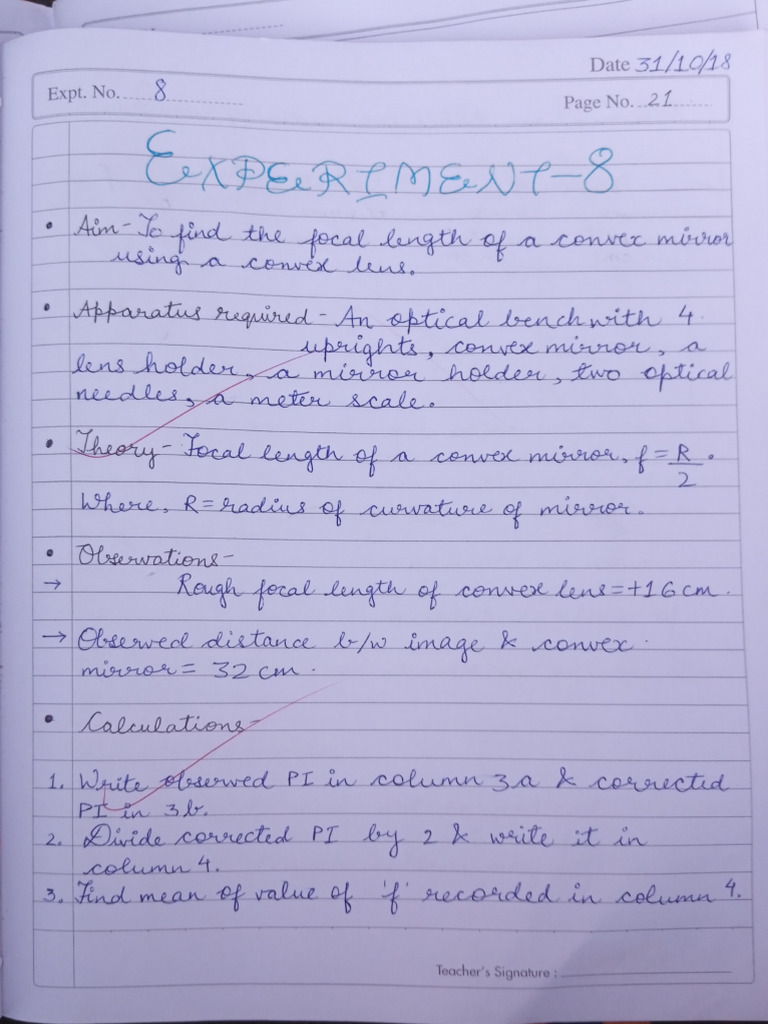 Date 31/10/18
Expt. No. 8
Page No. 21
EXPERIMENT-8
• Aim - To find the focal length of a convex mirror
using a convex lens.
• Apparatus required - An optical bench with 4
uprights, convex mirror, a
lens holder, a mirror holder, two optical
needles, a meter scale.
• Theory - Focal length of a convex mirror, f = R/2.
Where, R = radius of curvature of mirror.
• Observations -
→ Rough focal length of convex lens = +16 cm.
→ Observed distance b/w image & convex
mirror = 32 cm.
• Calculations -
1. Write observed PI in column 3a & corrected
PI in 3b.
2. Divide corrected PI by 2 & write it in
column 4.
3. Find mean of value of 'f' recorded in column 4.
Teacher's Signature :